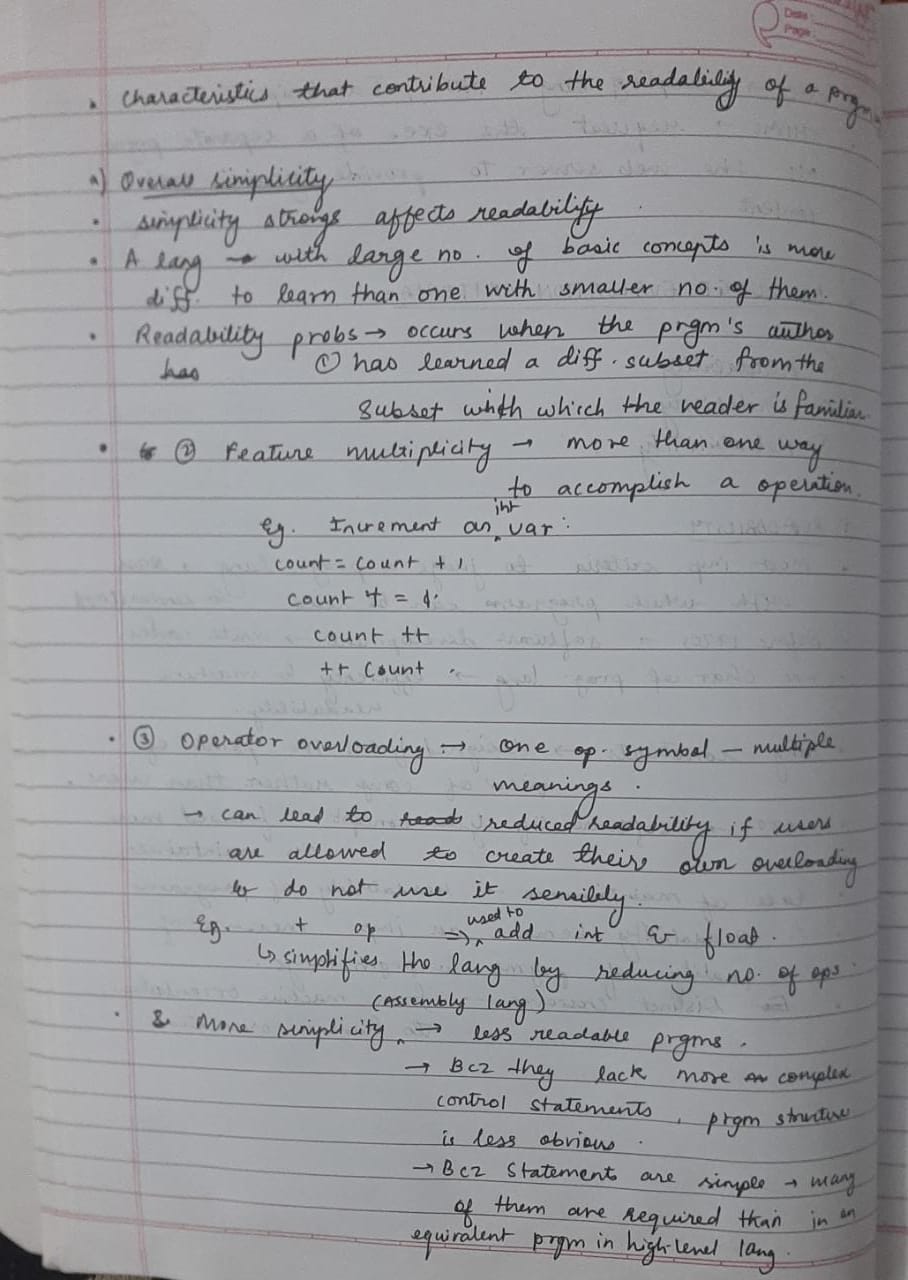 Date :
Page :
• Characteristics that contribute to the readability of a prgm
a) Overall simplicity
• simplicity strongs affects readability
• A lang → with large no. of basic concepts is more
diff. to learn than one with smaller no. of them.
• Readability probs → occurs when the prgm's author
has ① has learned a diff. subset from the
subset whth which the reader is familiar
• ② Feature multiplicity → more than one way
to accomplish a operation.
int
eg. Increment an var :
count = count + 1
count + = 1
count ++
++ count
• ③ Operator overloading → one op. symbol — multiple
meanings.
→ can lead to reduced readability if users
are allowed to create their own overloading
& do not use it sensibly.
used to
Eg. + op ⇒ add int & float.
↳ simplifies the lang by reducing no. of ops
(Assembly lang)
• More simplicity → less readable prgms.
→ Bcz they lack more complex
control statements, prgm structure
is less obvious.
→ Bcz statement are simple → many
of them are required than in an
equivalent prgm in high-level lang.